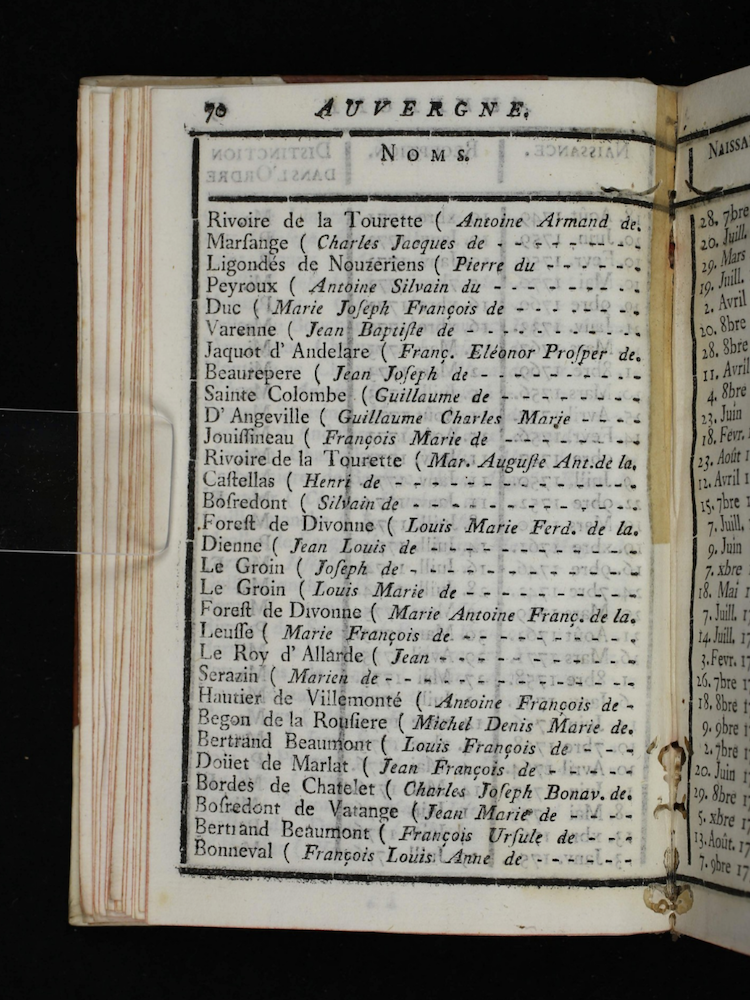 70 AUVERGNE.
NOMS.
Rivoire de la Tourette ( Antoine Armand de.
Marſange ( Charles Jacques de - - - - - - - -
Ligondés de Nouzeriens ( Pierre du - - - - - -
Peyroux ( Antoine Silvain du - - - - - - - -
Duc ( Marie Joſeph François de - - - - - - -
Varenne ( Jean Baptiſte de - - - - - - - - - -
Jaquot d' Andelare ( Franç. Eléonor Proſper de.
Beaurepere ( Jean Joſeph de - - - - - - - - -
Sainte Colombe ( Guillaume de - - - - - - - -
D' Angeville ( Guillaume Charles Marie - - - -
Jouiſſineau ( François Marie de - - - - - - - -
Rivoire de la Tourette ( Mar. Auguſte Ant. de la.
Caſtellas ( Henri de - - - - - - - - - - - - -
Boſredont ( Silvain de - - - - - - - - - - - -
Foreſt de Divonne ( Louis Marie Ferd. de la.
Dienne ( Jean Louis de - - - - - - - - - - -
Le Groin ( Joſeph de - - - - - - - - - - - -
Le Groin ( Louis Marie de - - - - - - - - -
Foreſt de Divonne ( Marie Antoine Franç. de la.
Leuſſe ( Marie François de - - - - - - - - -
Le Roy d' Allarde ( Jean - - - - - - - - - -
Serazin ( Marien de - - - - - - - - - - - - -
Hautier de Villemonté ( Antoine François de -
Begon de la Rouſiere ( Michel Denis Marie de.
Bertrand Beaumont ( Louis François de - - -
Doüet de Marlat ( Jean François de - - - - -
Bordes de Chatelet ( Charles Joſeph Bonav. de.
Boſredont de Vatange ( Jean Marie de - - - -
Bertrand Beaumont ( François Urſule de - - -
Bonneval ( François Louis Anne de - - - - - -
NAISSA
28. 7bre
20. Juill.
29. Mars
19. Juill.
2. Avril
20. 8bre
28. 8bre
11. Avril
4. 8bre
23. Juin
18. Fevr.
23. Août 1
12. Avril 1
15. 7bre 1
7. Juill.
9. Juin
7. xbre
18. Mai 1
7. Juill. 17
14. Juill. 17
3. Fevr. 17
26. 7bre 17
18. 8bre 17
9. 9bre 17
2. 7bre 17
20. Juin 17
29. 8bre 17
5. xbre 17
13. Août. 17
7. 9bre 17